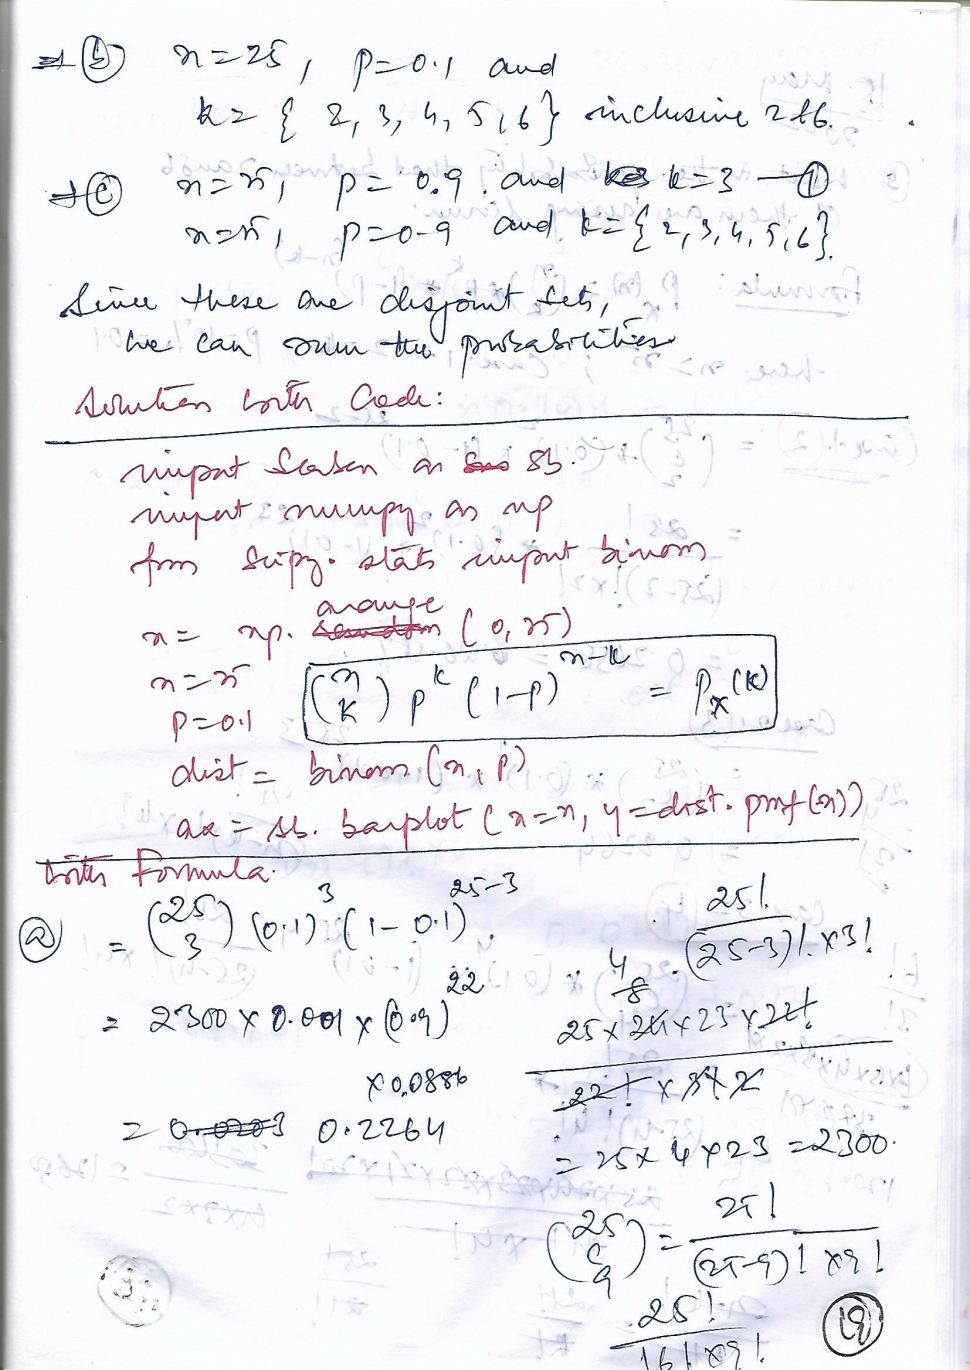 ⇒ (b) n=25, p=0.1 and
k= { 2, 3, 4, 5, 6} inclusive 2 & 6.
→ (c) n=25, p= 0.9. and k=3 — (1)
n=25, p=0.9 and k={2,3,4,5,6}.
Since these are disjoint sets,
we can sum the probabilities
Solution with Code:
import seaborn as sb.
import numpy as np
from scipy.stats import binom
x= np. arange (0, 25)
n=25
p=0.1
(n k) p^k (1-p)^(n-k) = P_x(k)
dist = binom (n, p)
ax = sb. barplot (x=x, y=dist. pmf(x))
with Formula.
(a) = (25 3) (0.1)^3 (1-0.1)^(25-3).
= 2300 x 0.001 x (0.9)^22
x 0.0886
= 0.2264
25! / (25-3)! x 3!
4
8
25 x 24 x 23 x 22! / 22! x 3 x 2
= 25 x 4 x 23 = 2300.
(25 C 9) = 25! / (25-9)! x 9!
25! / 16! x 9!
(19)